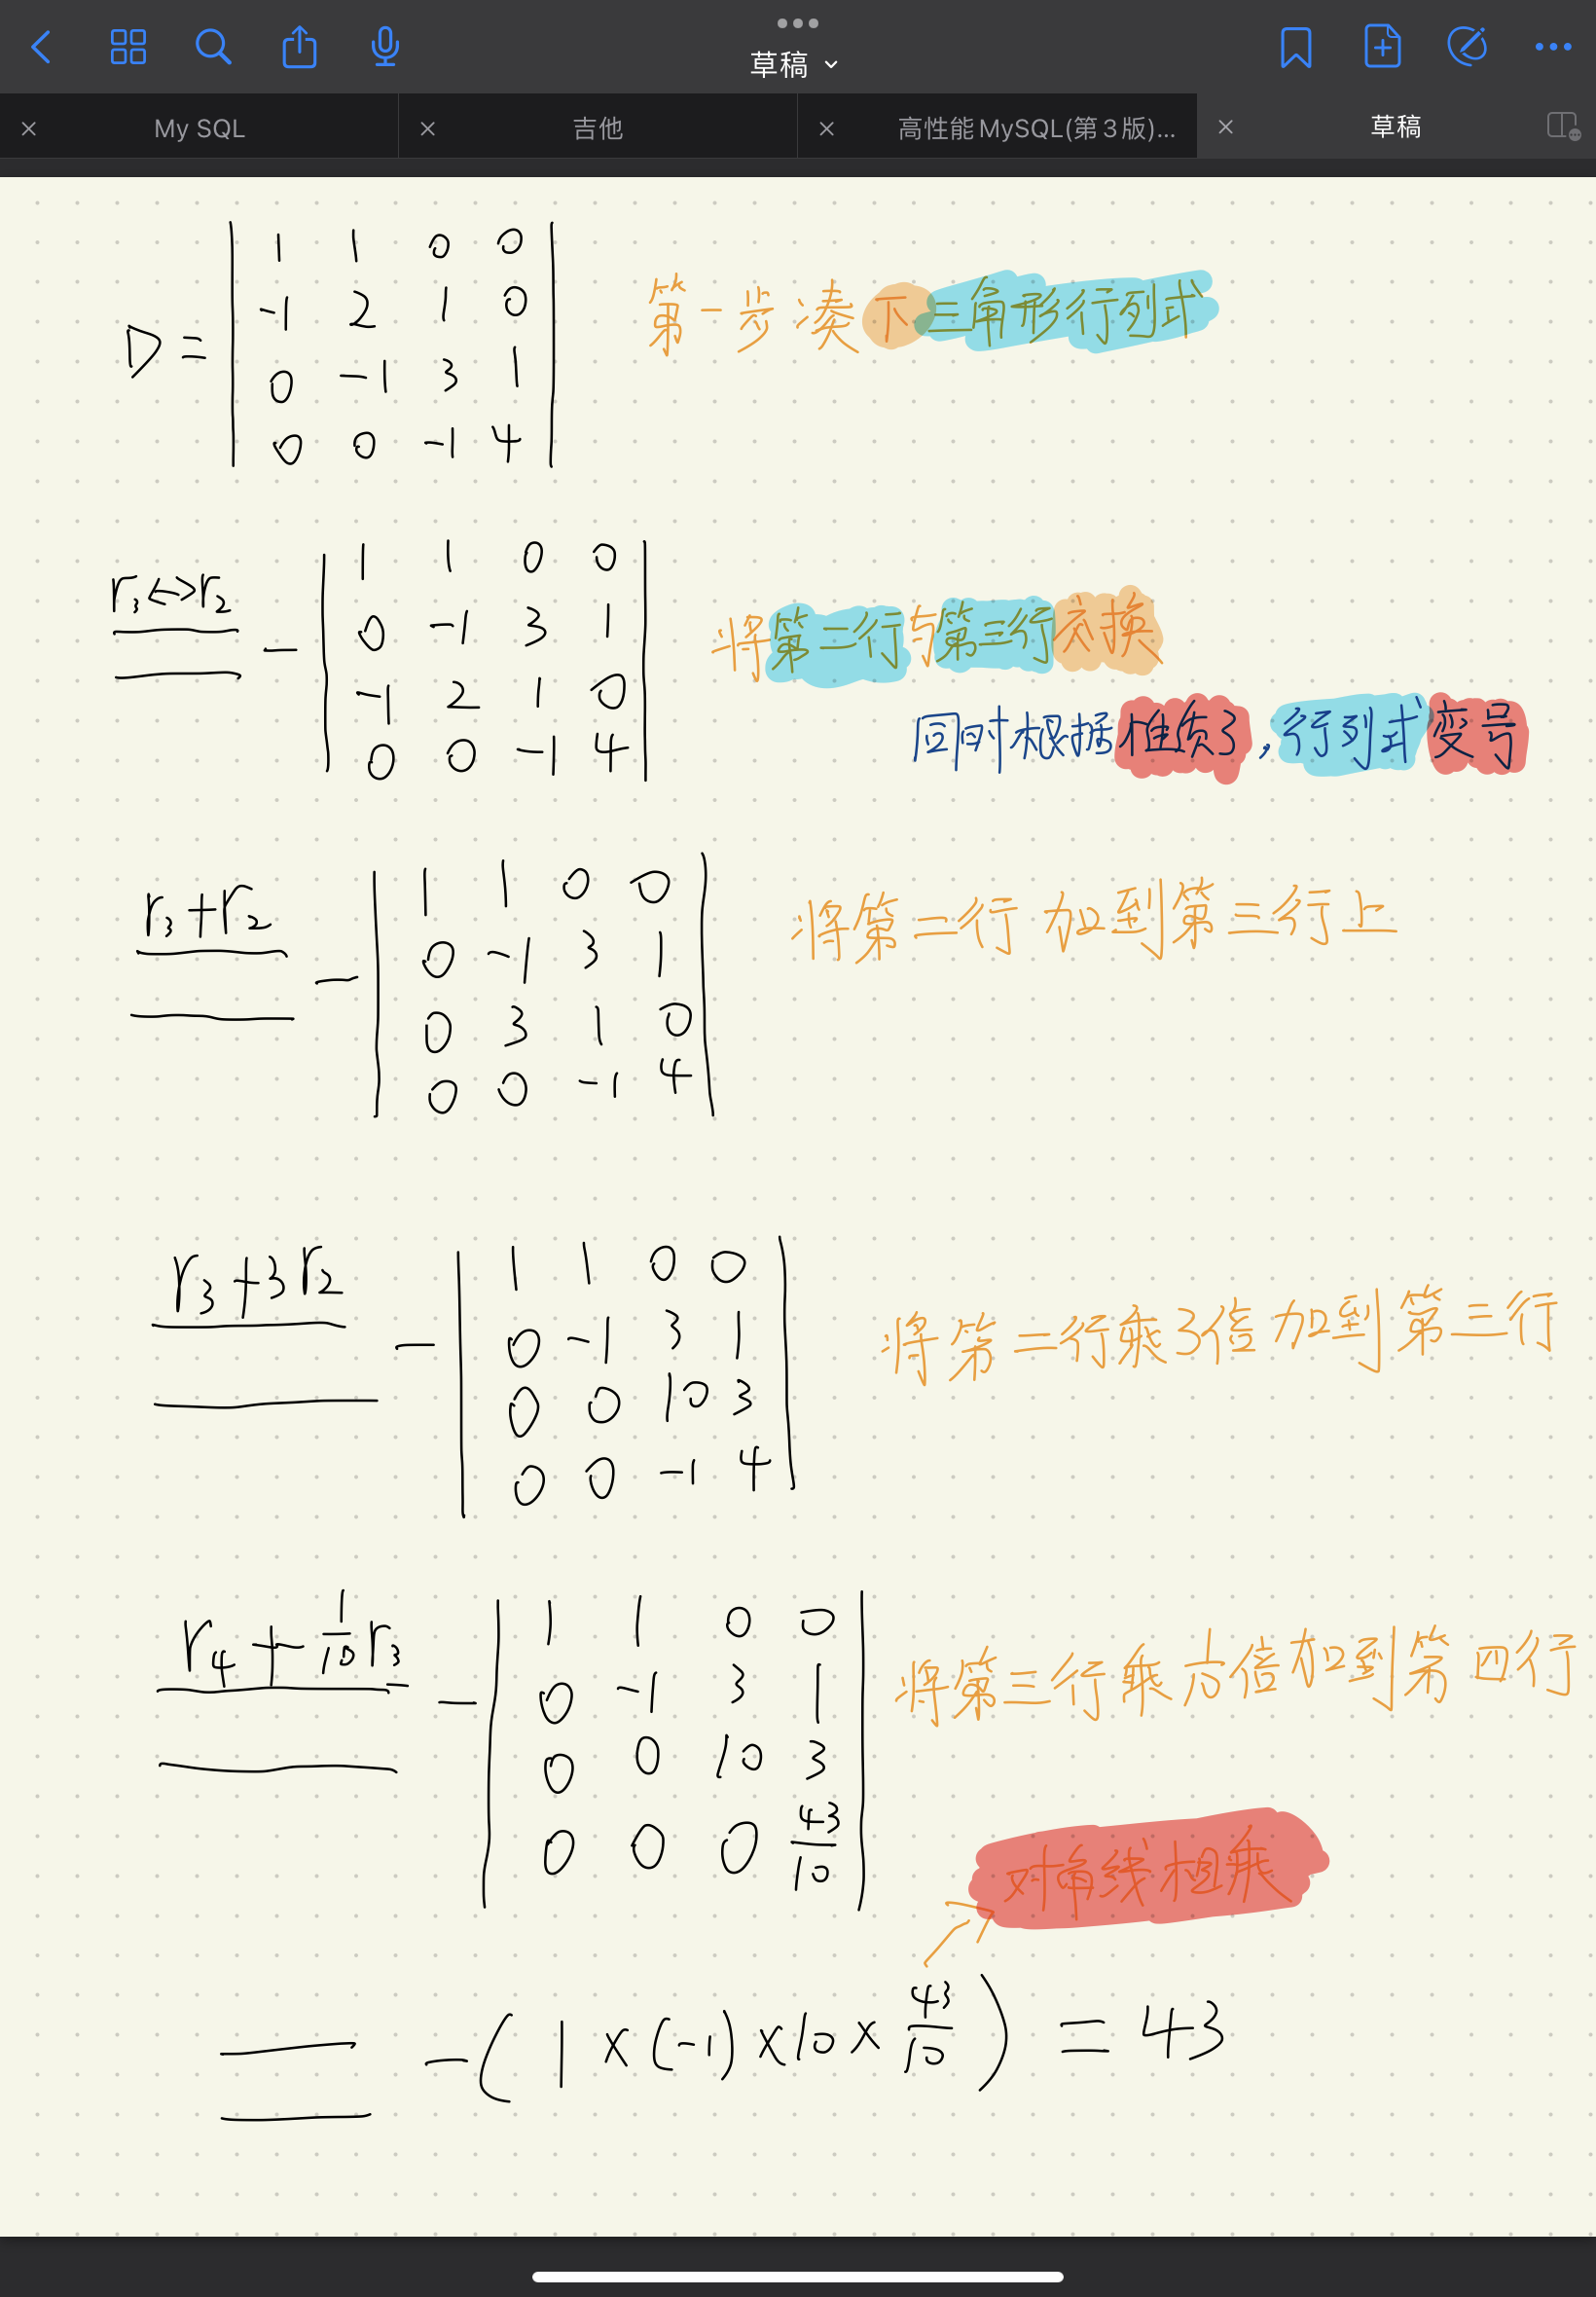 草稿
My SQL
吉他
高性能MySQL(第3版)...
草稿
D = | 1 1 0 0 |
| -1 2 1 0 |
| 0 -1 3 1 |
| 0 0 -1 4 |
第一步凑下三角形行列式
r3 ↔ r2
= - | 1 1 0 0 |
| 0 -1 3 1 |
| -1 2 1 0 |
| 0 0 -1 4 |
将第二行与第三行交换
同时根据性质3，行列式变号
r3 + r2
= - | 1 1 0 0 |
| 0 -1 3 1 |
| 0 3 1 0 |
| 0 0 -1 4 |
将第二行加到第三行上
r3 + 3r2
= - | 1 1 0 0 |
| 0 -1 3 1 |
| 0 0 10 3 |
| 0 0 -1 4 |
将第二行乘3倍加到第三行
r4 + 1/10 r3
= - | 1 1 0 0 |
| 0 -1 3 1 |
| 0 0 10 3 |
| 0 0 0 43/10 |
将第三行乘1/10倍加到第四行
对角线相乘
= -( 1 × (-1) × 10 × 43/10 ) = 43